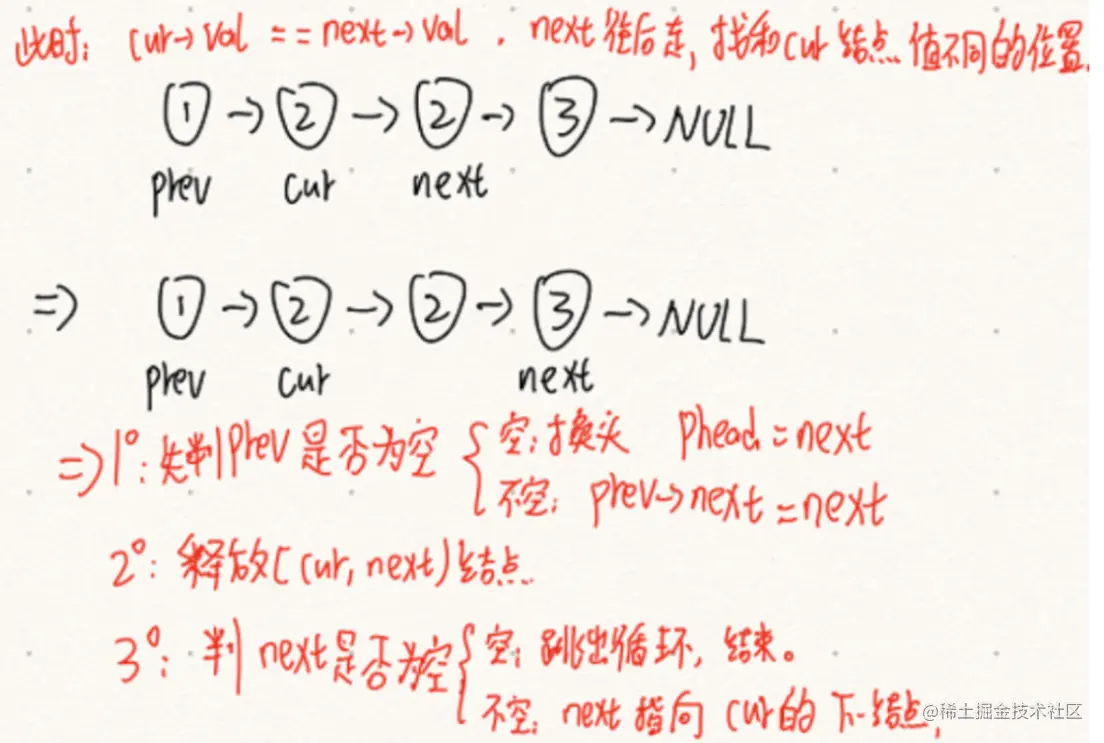 此时: cur->val == next->val . next往后走, 找和cur结点值不同的位置.
1 -> 2 -> 2 -> 3 -> NULL
prev cur next
=> 1 -> 2 -> 2 -> 3 -> NULL
prev cur next
=> 1°: 先判prev是否为空 { 空: 换头 phead = next
不空: prev->next = next
2°: 释放[cur, next)结点.
3°: 判next是否为空 { 空: 跳出循环, 结束。
不空: next指向cur的下一结点,
@稀土掘金技术社区